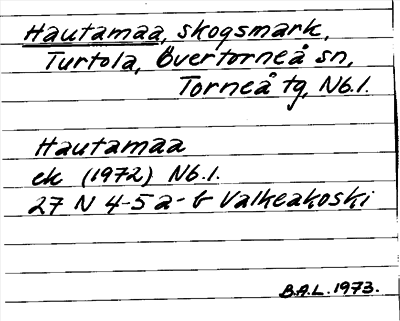 Hautamaa, skogsmark,
Turtola, Övertorneå sn,
Torneå tg, Nb.l.
Hautamaa
ek (1972) Nb.l.
27 N 4-5 a-b Valkeakoski
B.A.L. 1973.